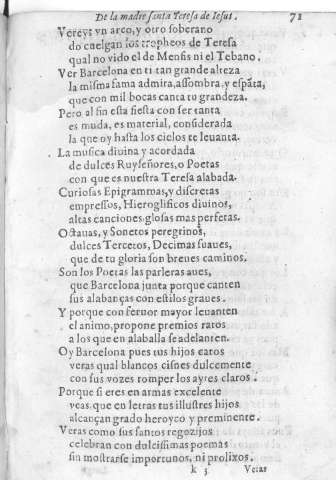 De la madre santa Teresa de Iesus. 72
Vereys vn arco, y otro soberano
do cuelgan los tropheos de Teresa
qual no vido el de Menfis ni el Tebano.
Ver Barcelona en ti tan grande alteza
la misma fama admira, assombra, y espāta,
que con mil bocas canta tu grandeza.
Pero al fin esta fiesta con ser tanta
es muda, es material, considerada
la que oy hasta los cielos te leuanta.
La musica diuina y acordada
de dulces Ruyseñores, o Poetas
con que es nuestra Teresa alabada.
Curiosas Epigrammas, y discretas
empressos, Hieroglificos diuinos,
altas canciones glosas mas perfetas.
Octauas, y Sonetos peregrinos,
dulces Tercetos, Decimas suaues,
que de tu gloria son breues caminos.
Son los Poetas las parleras aues,
que Barcelona junta porque canten
sus alabanças con estilos graues.
Y porque con feruor mayor leuanten
el animo, propone premios raros
a los que en alaballa se adelanten.
Oy Barcelona pues tus hijos caros
veras qual blancos cisnes dulcemente
con sus vozes romper los ayres claros.
Porque si eres en armas excelente
veas que en letras tus illustres hijos
alcançan grado heroyco y preminente.
Veras como sus santos regozijos
celebran con dulcissimas poemas
sin mostrarse importunos, ni prolixos.
k 3 Veras